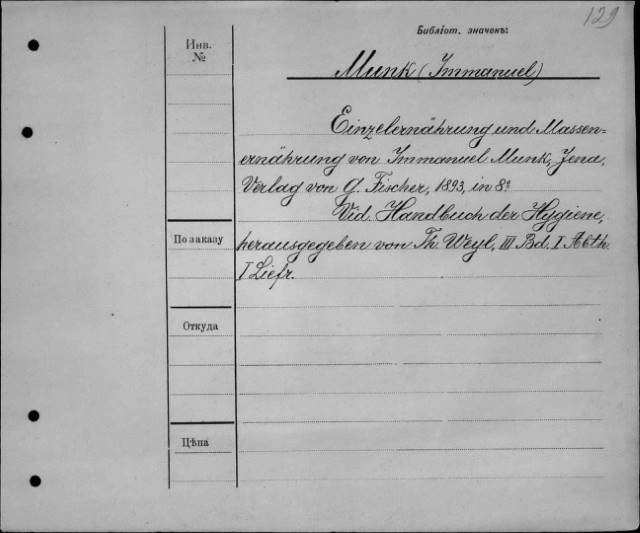 129
Библіот. значекъ:
Инв.
№
Munk (Immanuel)
Einzelernährung und Massen=
ernährung von Immanuel Munk, Jena,
Verlag von G. Fischer, 1893, in 8º
Vid. Handbuch der Hygiene,
По заказу
herausgegeben von Th. Weyl, III Bd. I Abth.
I Liefr.
Откуда
Цѣна